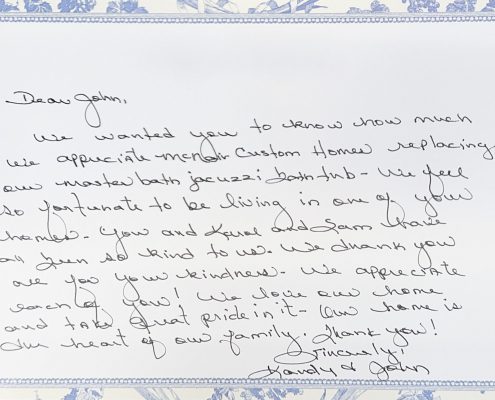 Dear John,
We wanted you to know how much
we appreciate Custom Homes replacing
our master bath jacuzzi bath tub - We feel
so fortunate to be living in one of your
homes. You and and Sam have
all been so kind to us. We thank you
all for your kindness - We appreciate
each of you! We love our home
and take great pride in it - Our home is
the heart of our family. Thank you!
Sincerely,
& John